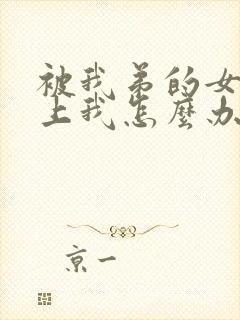 被我弟的女
上我怎麼办
京一